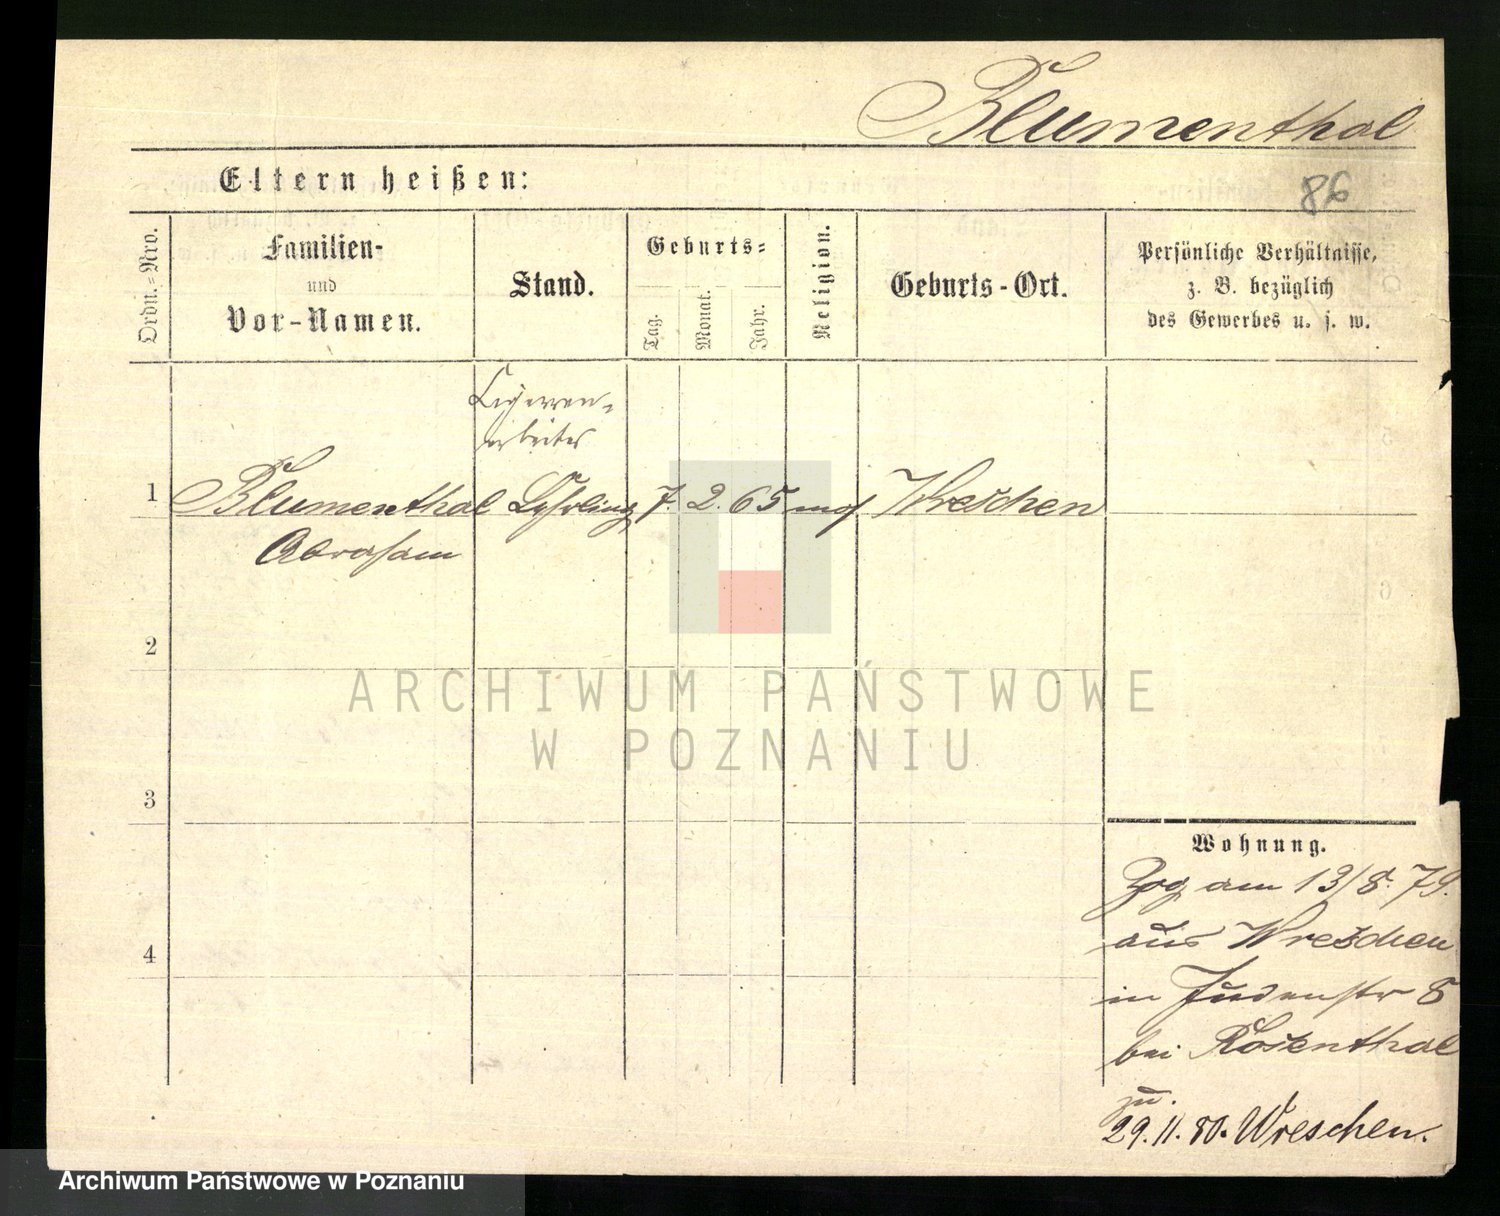 Blumenthal
Eltern heißen:
86
Ordn.-Nro.
Familien-
und
Vor-Namen.
Stand.
Geburts-
Tag.
Monat.
Jahr.
Religion.
Geburts-Ort.
Persönliche Verhältnisse,
z. B. bezüglich
des Gewerbes u. s. w.
Cigarren-
arbeiter
1 Blumenthal Lehrling 7. 2. 65 mos Wreschen
Abraham
2
ARCHIWUM PAŃSTWOWE
W POZNANIU
3
Wohnung.
Zog am 13/8. 79.
aus Wreschen
4
in Judenstr 8
bei Rosenthal
29.11.80. Wreschen.
Archiwum Państwowe w Poznaniu